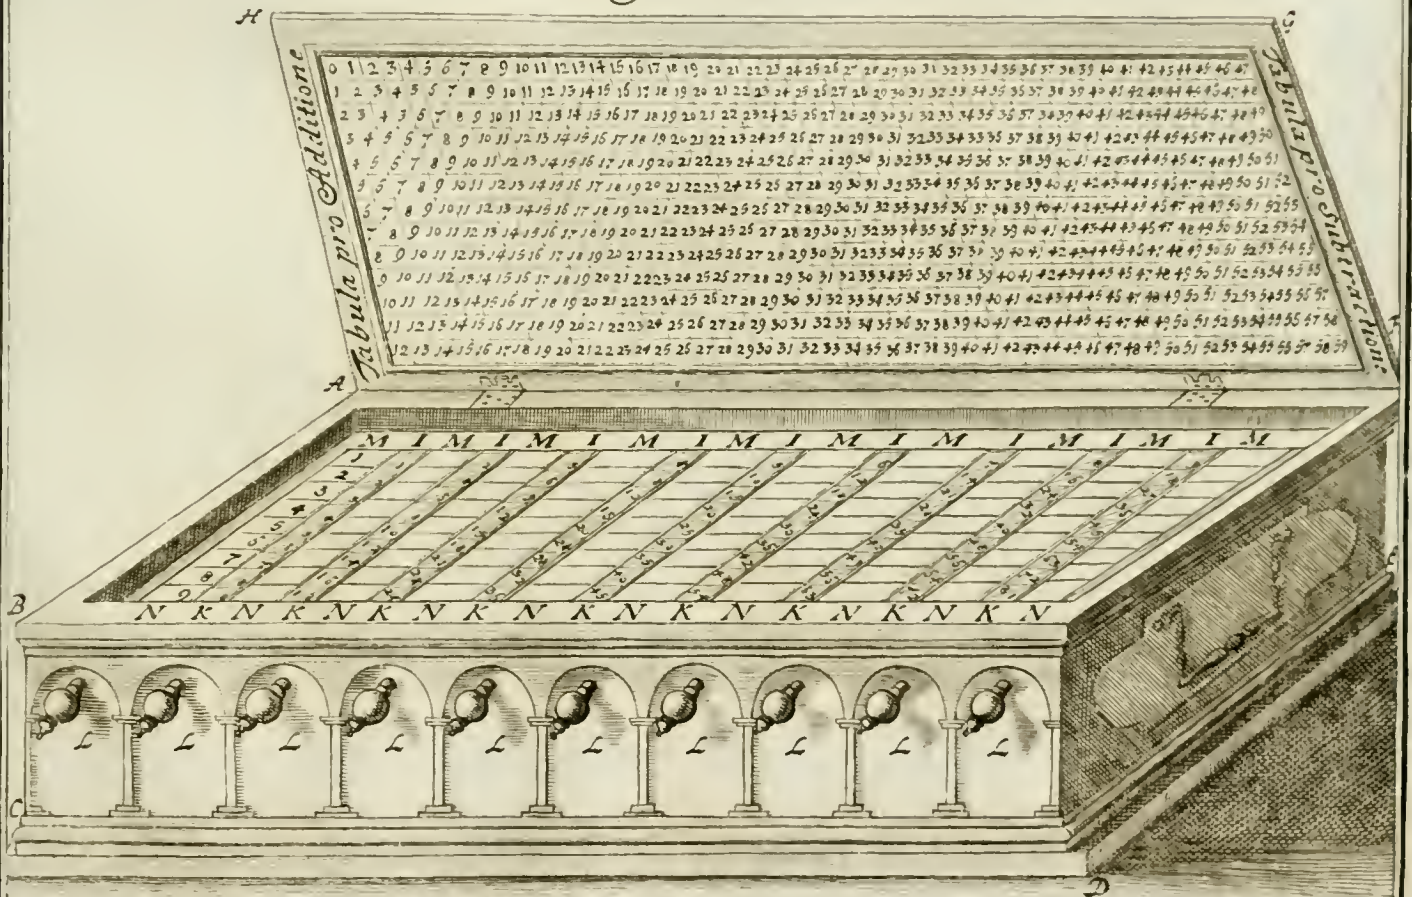 H G
Tabula pro Additione
Tabula pro Subtractione
0 1 2 3 4 5 6 7 8 9 10 11 12 13 14 15 16 17 18 19 20 21 22 23 24 25 26 27 28 29 30 31 32 33 34 35 36 37 38 39 40 41 42 43 44 45 46 47
1 2 3 4 5 6 7 8 9 10 11 12 13 14 15 16 17 18 19 20 21 22 23 24 25 26 27 28 29 30 31 32 33 34 35 36 37 38 39 40 41 42 43 44 45 46 47 48
2 3 4 5 6 7 8 9 10 11 12 13 14 15 16 17 18 19 20 21 22 23 24 25 26 27 28 29 30 31 32 33 34 35 36 37 38 39 40 41 42 43 44 45 46 47 48 49
3 4 5 6 7 8 9 10 11 12 13 14 15 16 17 18 19 20 21 22 23 24 25 26 27 28 29 30 31 32 33 34 35 36 37 38 39 40 41 42 43 44 45 46 47 48 49 50
4 5 6 7 8 9 10 11 12 13 14 15 16 17 18 19 20 21 22 23 24 25 26 27 28 29 30 31 32 33 34 35 36 37 38 39 40 41 42 43 44 45 46 47 48 49 50 51
5 6 7 8 9 10 11 12 13 14 15 16 17 18 19 20 21 22 23 24 25 26 27 28 29 30 31 32 33 34 35 36 37 38 39 40 41 42 43 44 45 46 47 48 49 50 51 52
6 7 8 9 10 11 12 13 14 15 16 17 18 19 20 21 22 23 24 25 26 27 28 29 30 31 32 33 34 35 36 37 38 39 40 41 42 43 44 45 46 47 48 49 50 51 52 53
7 8 9 10 11 12 13 14 15 16 17 18 19 20 21 22 23 24 25 26 27 28 29 30 31 32 33 34 35 36 37 38 39 40 41 42 43 44 45 46 47 48 49 50 51 52 53 54
8 9 10 11 12 13 14 15 16 17 18 19 20 21 22 23 24 25 26 27 28 29 30 31 32 33 34 35 36 37 38 39 40 41 42 43 44 45 46 47 48 49 50 51 52 53 54 55
9 10 11 12 13 14 15 16 17 18 19 20 21 22 23 24 25 26 27 28 29 30 31 32 33 34 35 36 37 38 39 40 41 42 43 44 45 46 47 48 49 50 51 52 53 54 55 56
10 11 12 13 14 15 16 17 18 19 20 21 22 23 24 25 26 27 28 29 30 31 32 33 34 35 36 37 38 39 40 41 42 43 44 45 46 47 48 49 50 51 52 53 54 55 56 57
11 12 13 14 15 16 17 18 19 20 21 22 23 24 25 26 27 28 29 30 31 32 33 34 35 36 37 38 39 40 41 42 43 44 45 46 47 48 49 50 51 52 53 54 55 56 57 58
12 13 14 15 16 17 18 19 20 21 22 23 24 25 26 27 28 29 30 31 32 33 34 35 36 37 38 39 40 41 42 43 44 45 46 47 48 49 50 51 52 53 54 55 56 57 58 59
A
M I M I M I M I M I M I M I M I M I M
1
2
3
4
5
6
7
8
9
B
N K N K N K N K N K N K N K N K N K N
L L L L L L L L L L
C
D